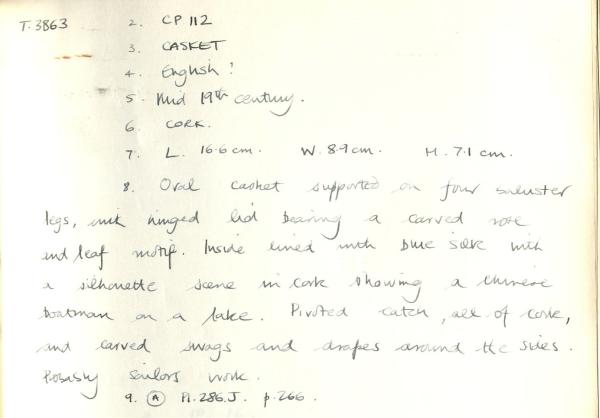 T.3863 2. CP 112
3. CASKET
4. English?
5. Mid 19th century.
6. CORK.
7. L. 16.6cm. W. 8.9cm. H. 7.1 cm.
8. Oval casket supported on four baluster
legs, with hinged lid bearing a carved rose
and leaf motif. Inside lined with blue silk with
a silhouette scene in cork showing a Chinese
boatman on a lake. Pivoted catch, all of cork,
and carved swags and drapes around the sides.
Possibly sailors work.
9. A Pl. 286.J. p.266.